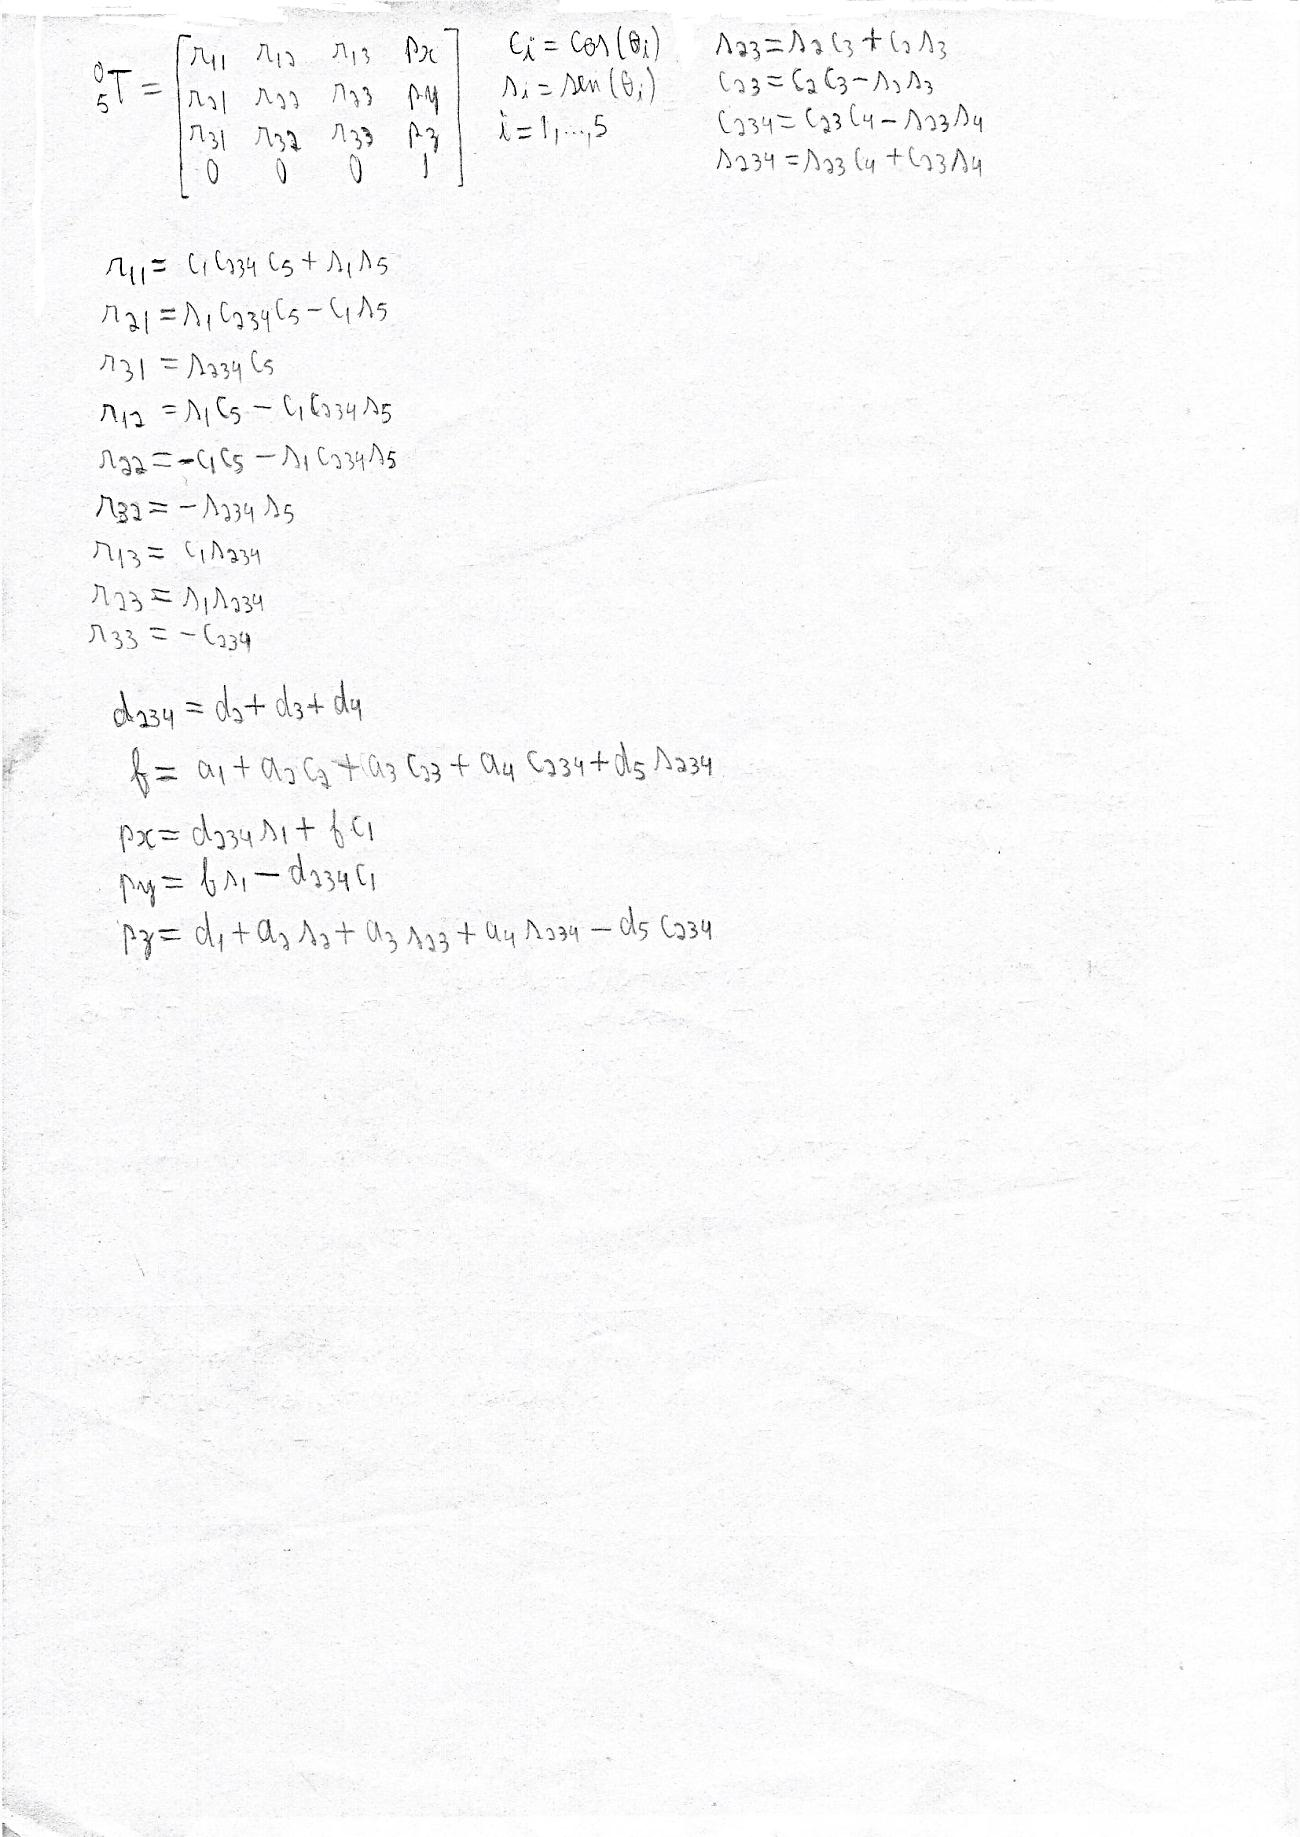 ⁰₅T = [ r11 r12 r13 px
r21 r22 r23 py
r31 r32 r33 pz
0 0 0 1 ]
ci = cos(θi)
si = sen(θi)
i = 1,...,5
s23 = s2c3 + c2s3
c23 = c2c3 - s2s3
c234 = c23c4 - s23s4
s234 = s23c4 + c23s4
r11 = c1c234c5 + s1s5
r21 = s1c234c5 - c1s5
r31 = s234c5
r12 = s1c5 - c1c234s5
r22 = -c1c5 - s1c234s5
r32 = -s234s5
r13 = c1s234
r23 = s1s234
r33 = -c234
d234 = d2 + d3 + d4
f = a1 + a2c2 + a3c23 + a4c234 + d5s234
px = d234s1 + fc1
py = fs1 - d234c1
pz = d1 + a2s2 + a3s23 + a4s234 - d5c234